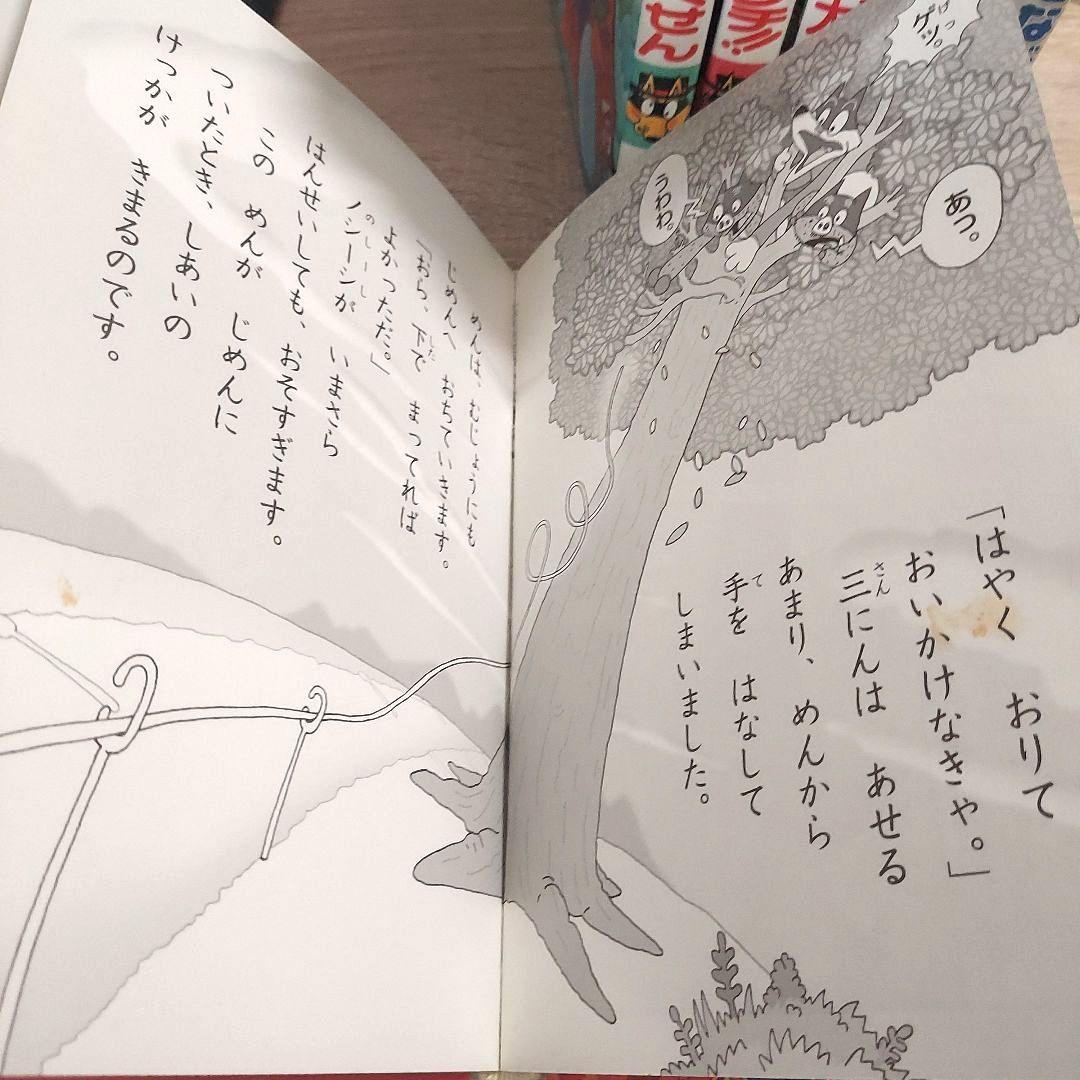 「はやく おりて
おいかけなきゃ。」
三にんは あせる
さん
あまり、めんから
手を はなして
て
しまいました。
あっ。
ゲッ。
げっ
うわわ。
めんは、むじょうにも
じめんへ おちていきます。
「おら、下で まってれば
した
よかっただ。」
ノシーシが いまさら
のしーし
はんせいしても、おそすぎます。
この めんが じめんに
ついたとき、しあいの
けっかが きまるのです。
せん